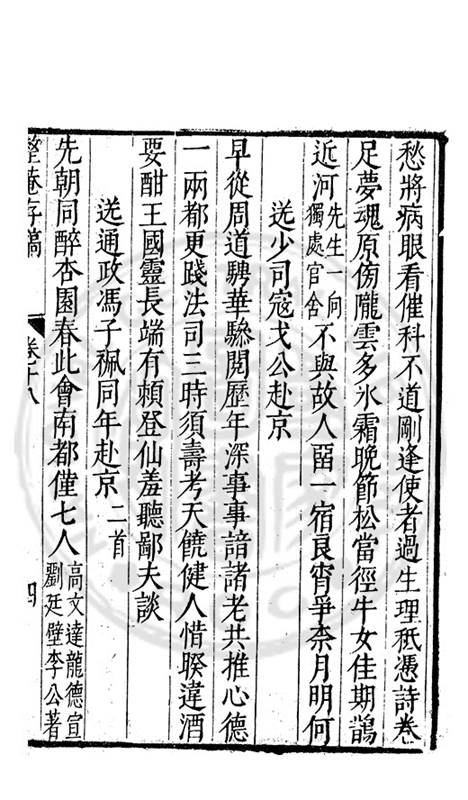 愁將病眼看催科不道剛逢使者過生理秪憑詩卷
足夢魂原傍隴雲多氷霜晚節松當徑牛女佳期鵲
近河先生一向獨處官舍不與故人畱一宿良宵爭柰月明何
送少司寇戈公赴京
早從周道騁華驂閱歷年深事事諳諸老共推心德
一兩都更踐法司三時須壽考天饒健人惜暌違酒
要酣王國靈長端有賴登仙羞聽鄙夫談
送通政馮子佩同年赴京二首
先朝同醉杏園春此會南都僅七人高文達龍德宣劉廷璧李公著
整菴存稿
卷十八
四